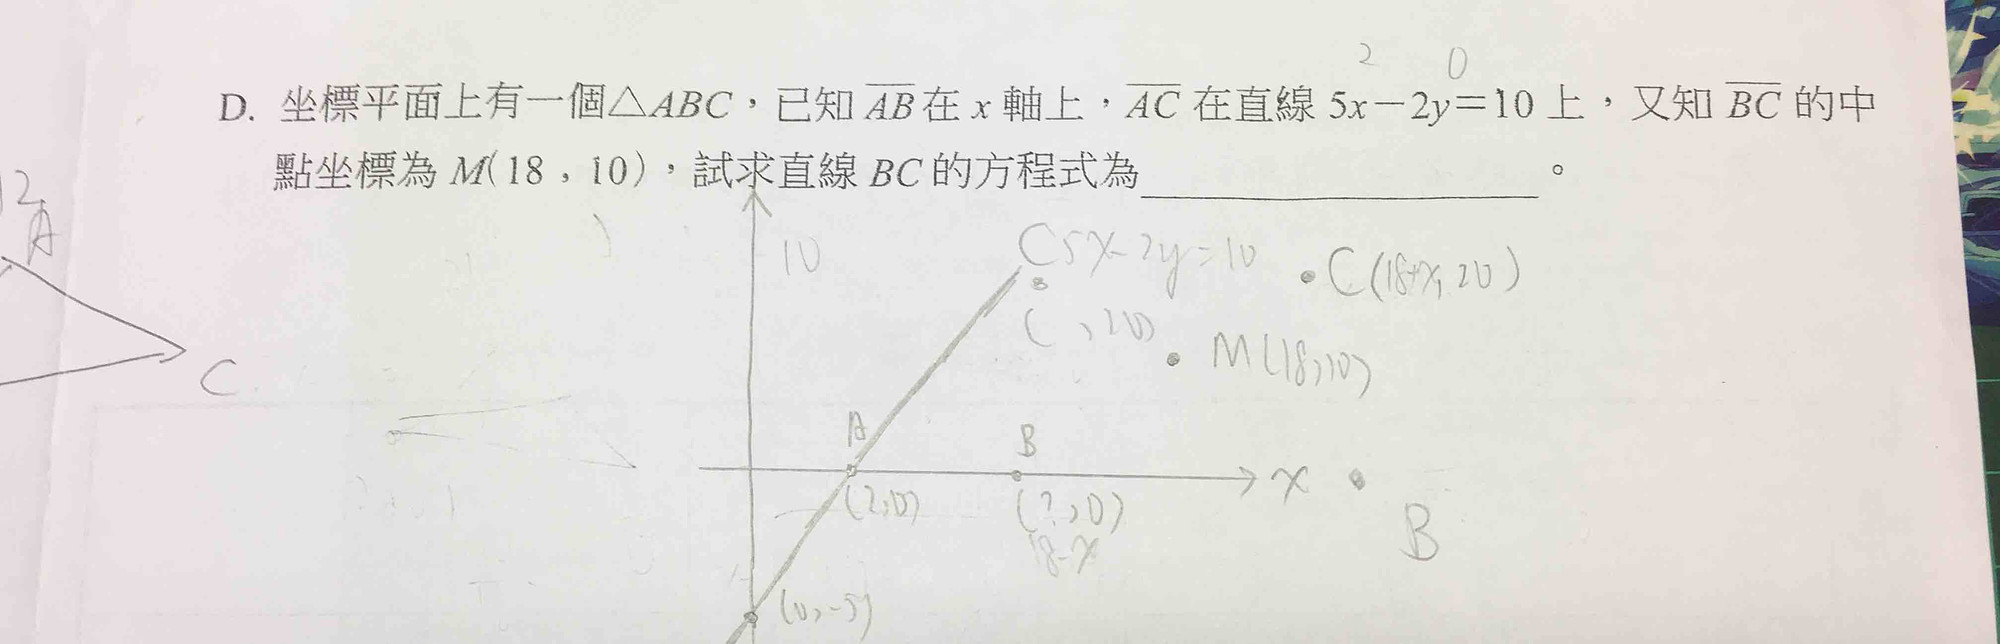 2 0
D. 坐標平面上有一個△ABC,已知 AB 在 x 軸上,AC 在直線 5x－2y＝10 上,又知 BC 的中
點坐標為 M(18 , 10),試求直線 BC 的方程式為＿＿＿＿＿＿＿＿。
A
C
10
C 5x-2y=10
C(18+x, 20)
( , 20)
M(18,10)
A
B
x
(2,0)
(?,0)
18-x
B
(0,-5)